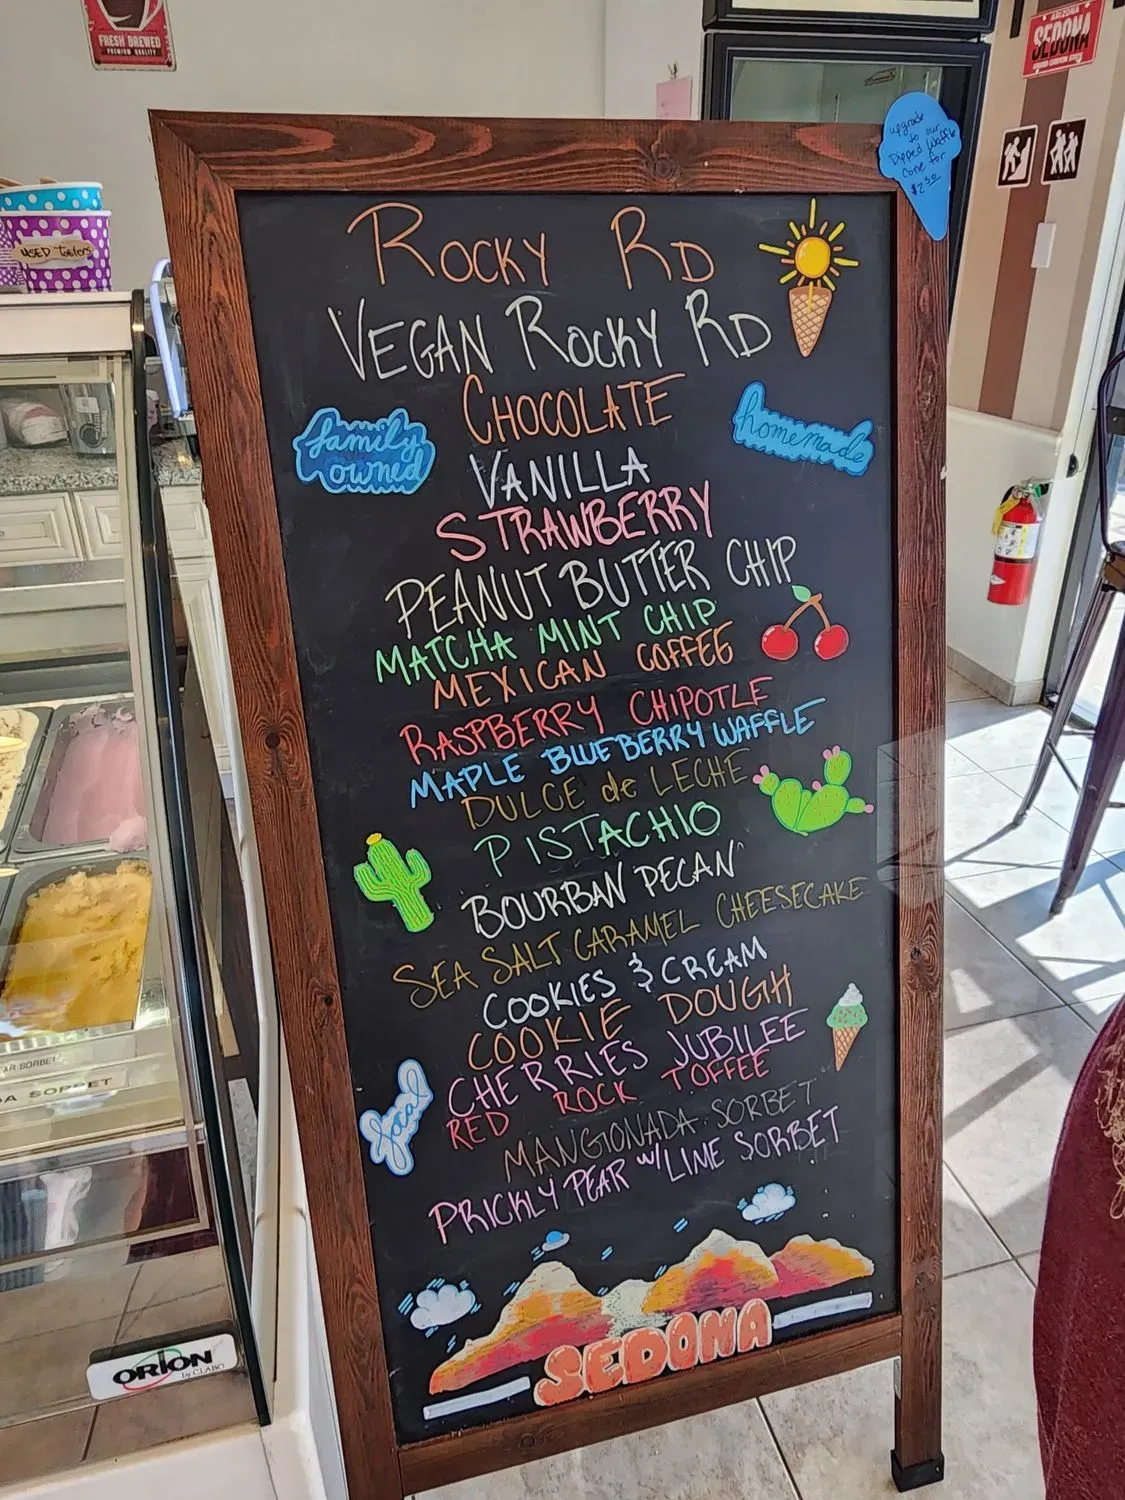 FRESH BREWED
PREMIUM QUALITY
ARIZONA
SEDONA
upgrade
to our
Dipped Waffle
Cone for
$2.50
USED Tasters
ROCKY RD
VEGAN ROCKY RD
CHOCOLATE
family
owned
homemade
VANILLA
STRAWBERRY
PEANUT BUTTER CHIP
MATCHA MINT CHIP
MEXICAN COFFEE
RASPBERRY CHIPOTLE
MAPLE BLUEBERRY WAFFLE
DULCE de LECHE
PISTACHIO
BOURBAN PECAN
SEA SALT CARAMEL CHEESECAKE
COOKIES & CREAM
COOKIE DOUGH
CHERRIES JUBILEE
RED ROCK TOFFEE
local
MANGIONADA SORBET
PRICKLY PEAR w/LIME SORBET
SEDONA
AR SORBET
DA SORBET
ORION
by CLABO